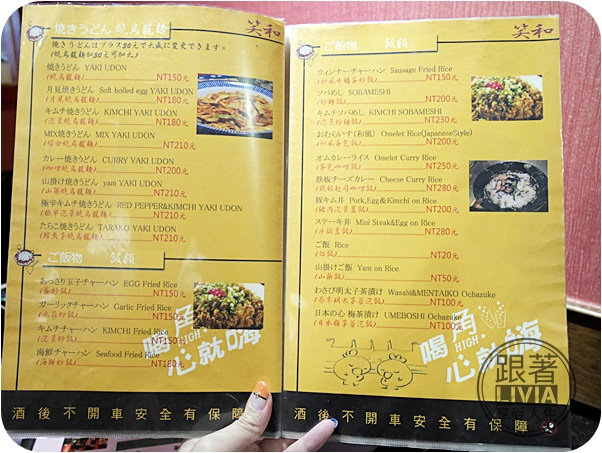 焼きうどん 燒烏龍麵
焼きうどんはプラス80元で大盛に変更できます。
(燒烏龍麵加80元可加大)
焼きうどん YAKI UDON
(燒烏龍麵) NT150元
月見焼きうどん Soft boiled egg YAKI UDON
(月見燒烏龍麵) NT180元
キムチ焼うどん KIMCHI YAKI UDON
(泡菜燒烏龍麵) NT180元
MIX焼きうどん MIX YAKI UDON
(綜合燒烏龍麵) NT210元
カレー焼きうどん CURRY YAKI UDON
(咖哩燒烏龍麵) NT210元
山掛け焼きうどん yam YAKI UDON
(山藥燒烏龍麵) NT210元
極辛キムチ焼きうどん RED PEPPER&KIMCHI YAKI UDON
NT210元
たらこ焼きうどん TARAKO YAKI UDON
NT210元
ご飯物 飯類
あっさり玉子チャーハン EGG Fried Rice
(蛋炒飯) NT150元
ガーリックチャーハン Garlic Fried Rice
(大蒜炒飯) NT150元
キムチチャーハン KIMCHI Fried Rice
(泡菜炒飯) NT150元
海鮮チャーハン Seafood Fried Rice
(海鮮炒飯) NT180元
喝角 HIGH
心就嗨
酒後不開車安全有保障
笑和
ご飯物 飯類
ウィンナーチャーハン Sausage Fried Rice
NT150元
ソバめし SOBAMESHI
(炒麵飯) NT200元
キムチソバめし KIMCHI SOBAMESHI
(泡菜炒麵飯) NT230元
おむらいす(和風) Omelet Rice(JapaneseStyle)
(和風蛋包飯) NT200元
オムカレーライス Omelet Curry Rice
(蛋包咖哩飯) NT250元
鉄板チーズカレー Cheese Curry Rice
(鐵板起司咖哩飯) NT280元
豚キム丼 Pork,Egg&Kimchi on Rice
(豬肉泡菜蓋飯) NT200元
ステーキ丼 Mini Steak&Egg on Rice
(牛排蓋飯) NT280元
ご飯 Rice
(白飯) NT20元
山掛けご飯 Yam on Rice
(山藥飯) NT50元
わさび明太子茶漬け Wasabi&MENTAIKO Ochazuke
NT100元
日本の心 梅茶漬け UMEBOSHI Ochazuke
(日本梅子茶泡飯) NT100元
喝角 HIGH
心就嗨
酒後不開車安全有保障
跟著
LIVIA
享受人生